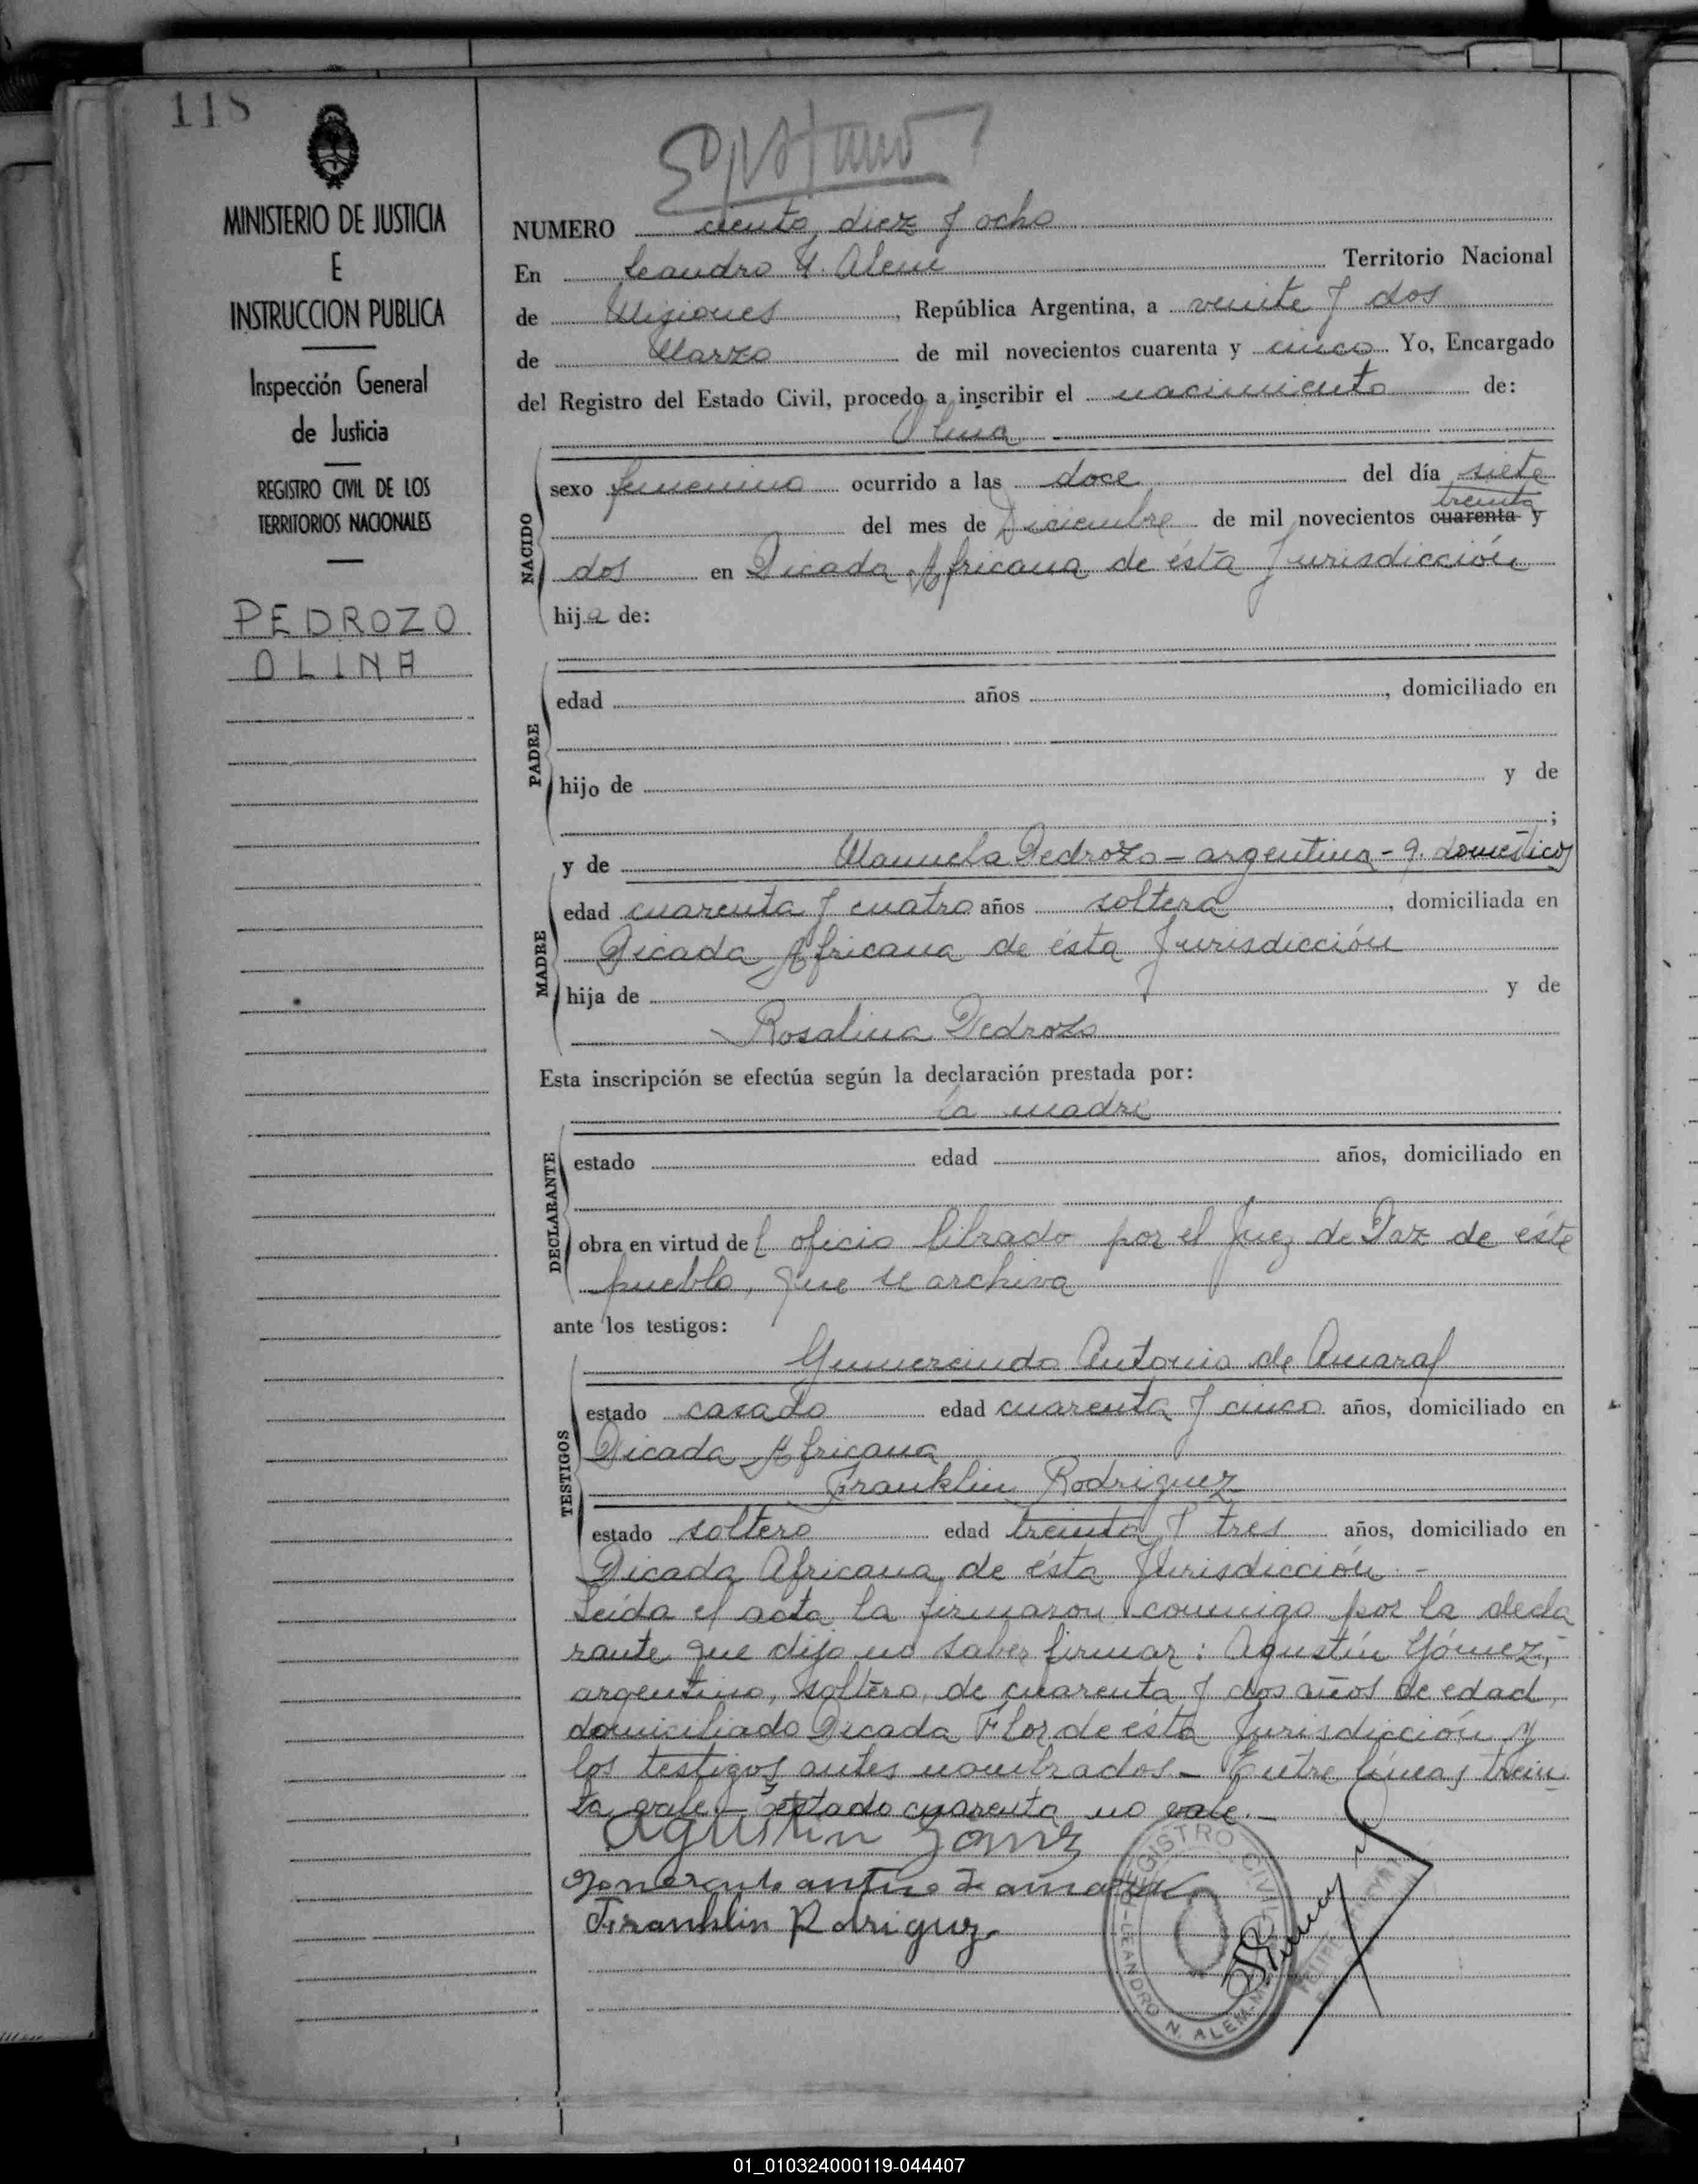 118
MINISTERIO DE JUSTICIA
E
INSTRUCCION PUBLICA
Inspección General
de Justicia
REGISTRO CIVIL DE LOS
TERRITORIOS NACIONALES
PEDROZO
OLINA
NUMERO ciento diez y ocho
En Leandro N. Alem Territorio Nacional
de Misiones, República Argentina, a veinte y dos
de Marzo de mil novecientos cuarenta y cinco Yo, Encargado
del Registro del Estado Civil, procedo a inscribir el nacimiento de:
Olina
NACIDO
sexo femenino ocurrido a las doce del día siete
treinta
del mes de Diciembre de mil novecientos cuarenta y
dos en Picada Africana de ésta Jurisdicción
hija de:
PADRE
edad años , domiciliado en
hijo de y de
;
y de Manuela Pedrozo - argentina - q. domésticos
MADRE
edad cuarenta y cuatro años soltera, domiciliada en
Picada Africana de ésta Jurisdicción
hija de y de
Rosalina Pedrozo
Esta inscripción se efectúa según la declaración prestada por:
la madre
DECLARANTE
estado edad años, domiciliado en
obra en virtud del oficio librado por el Juez de Paz de éste
pueblo, que se archiva
ante los testigos:
Gumercindo Antonio de Amaral
TESTIGOS
estado casado edad cuarenta y cinco años, domiciliado en
Picada Africana
Franklin Rodriguez
estado soltero edad treinta y tres años, domiciliado en
Picada Africana de ésta Jurisdicción.-
Leída el acta la firmaron conmigo por la decla
rante que dijo no saber firmar: Agustín Gómez,
argentino, soltero, de cuarenta y dos años de edad,
domiciliado Picada Flor de ésta Jurisdicción y
los testigos antes nombrados - Entre líneas trein
ta vale - Testado cuarenta no vale.-
Agustin Gomz
antnio de amaral
Franklin Rodriguz
REGISTRO CIVIL
LEANDRO N. ALEM
01_010324000119-044407